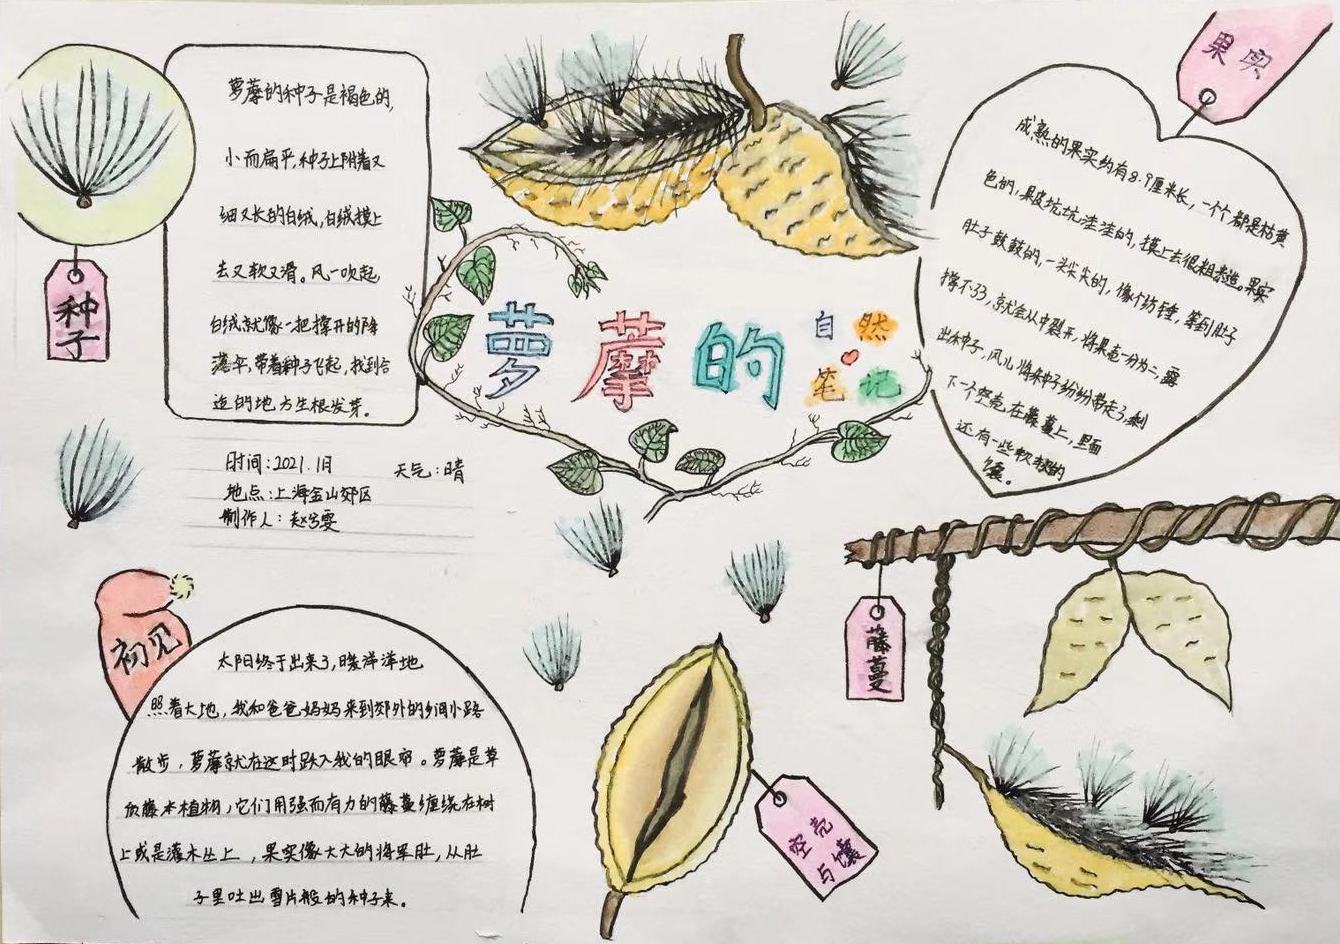 种子
萝藦的种子是褐色的,
小而扁平,种子上附着又
细又长的白绒,白绒摸上
去又软又滑。风一吹起
白绒就像一把撑开的降
落伞,带着种子飞起,找到合
适的地方生根发芽。
时间:2021.1月
天气:晴
地点:上海金山郊区
制作人:赵兮雯
萝藦的
自然
笔记
果实
成熟的果实约有8-9厘米长,一个个都是枯黄
色的,果皮坑坑洼洼的,摸上去很粗糙。果实
肚子鼓鼓的,一头尖尖的,像个纺锤,等到肚子
撑不住,就会从中裂开,将果壳一分为二,露
出种子,风儿将种子纷纷带走了,剩
下一个空壳在藤蔓上,里面
还有一些软软的
瓤。
初见
太阳终于出来了,暖洋洋地
照着大地,我和爸爸妈妈来到郊外的乡间小路
散步,萝藦就在这时跃入我的眼帘。萝藦是草
质藤本植物,它们用强而有力的藤蔓缠绕在树
上或是灌木丛上,果实像大大的将军肚,从肚
子里吐出雪片般的种子来。
藤蔓
空壳
与瓤